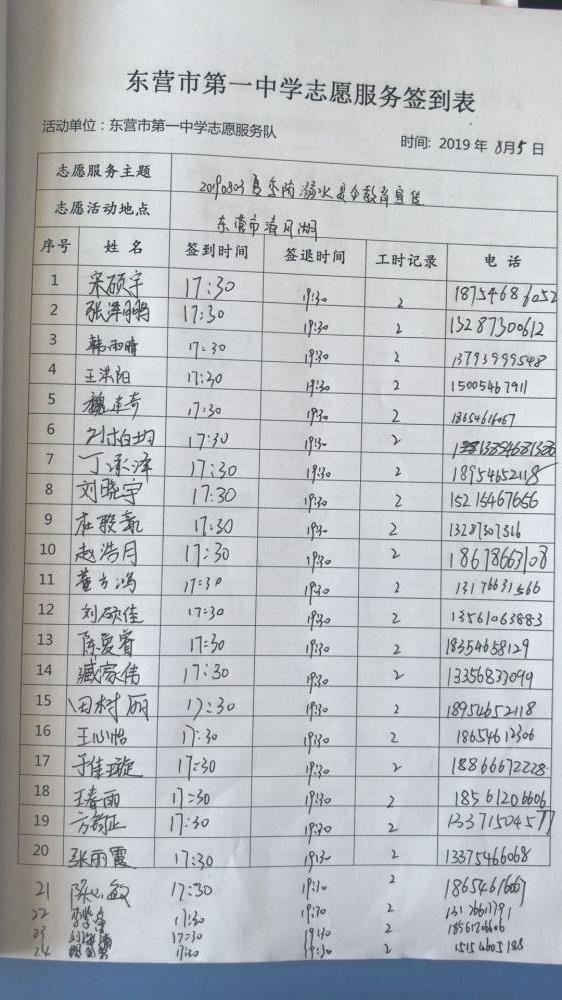 东营市第一中学志愿服务签到表
活动单位：东营市第一中学志愿服务队
时间: 2019 年 8月5 日
志愿服务主题 20190803夏季防溺水安全教育宣传
志愿活动地点 东营市清风湖
序号 姓 名 签到时间 签退时间 工时记录 电 话
1 宋硕宇 17:30 19:30 2
2 张泽鹏 17:30 19:30 2 13287300612
3 韩雨晴 17:30 19:30 2 13793999548
4 王洪阳 17:30 19:30 2 15005467911
5 17:30 19:30 2
6 刘柏均 17:30 19:30 2
7 丁承泽 17:30 19:30 2 18954652118
8 刘晓宇 17:30 19:30 2 15215467656
9 17:30 19:30 2 13287307316
10 赵浩月 17:30 19:30 2
11 董方鸿 17:30 19:30 2 13176631566
12 刘硕佳 17:30 19:30 2 13561063883
13 17:30 19:30 2 18354658129
14 臧家伟 17:30 19:30 2 13356833099
15 田树丽 17:30 19:30 2 18954652118
16 王心怡 17:30 19:30 2 18654612306
17 于佳璇 17:30 19:30 2 18866672228
18 王春雨 17:30 19:30 2 18561206606
19 17:30 19:30 2 13371504577
20 张丽霞 17:30 19:30 2 13375466068
21 陈心敏 17:30 19:30 2
22 17:30 19:30 2
23 17:30 19:30 2 18561206606
24 17:30 19:30 2